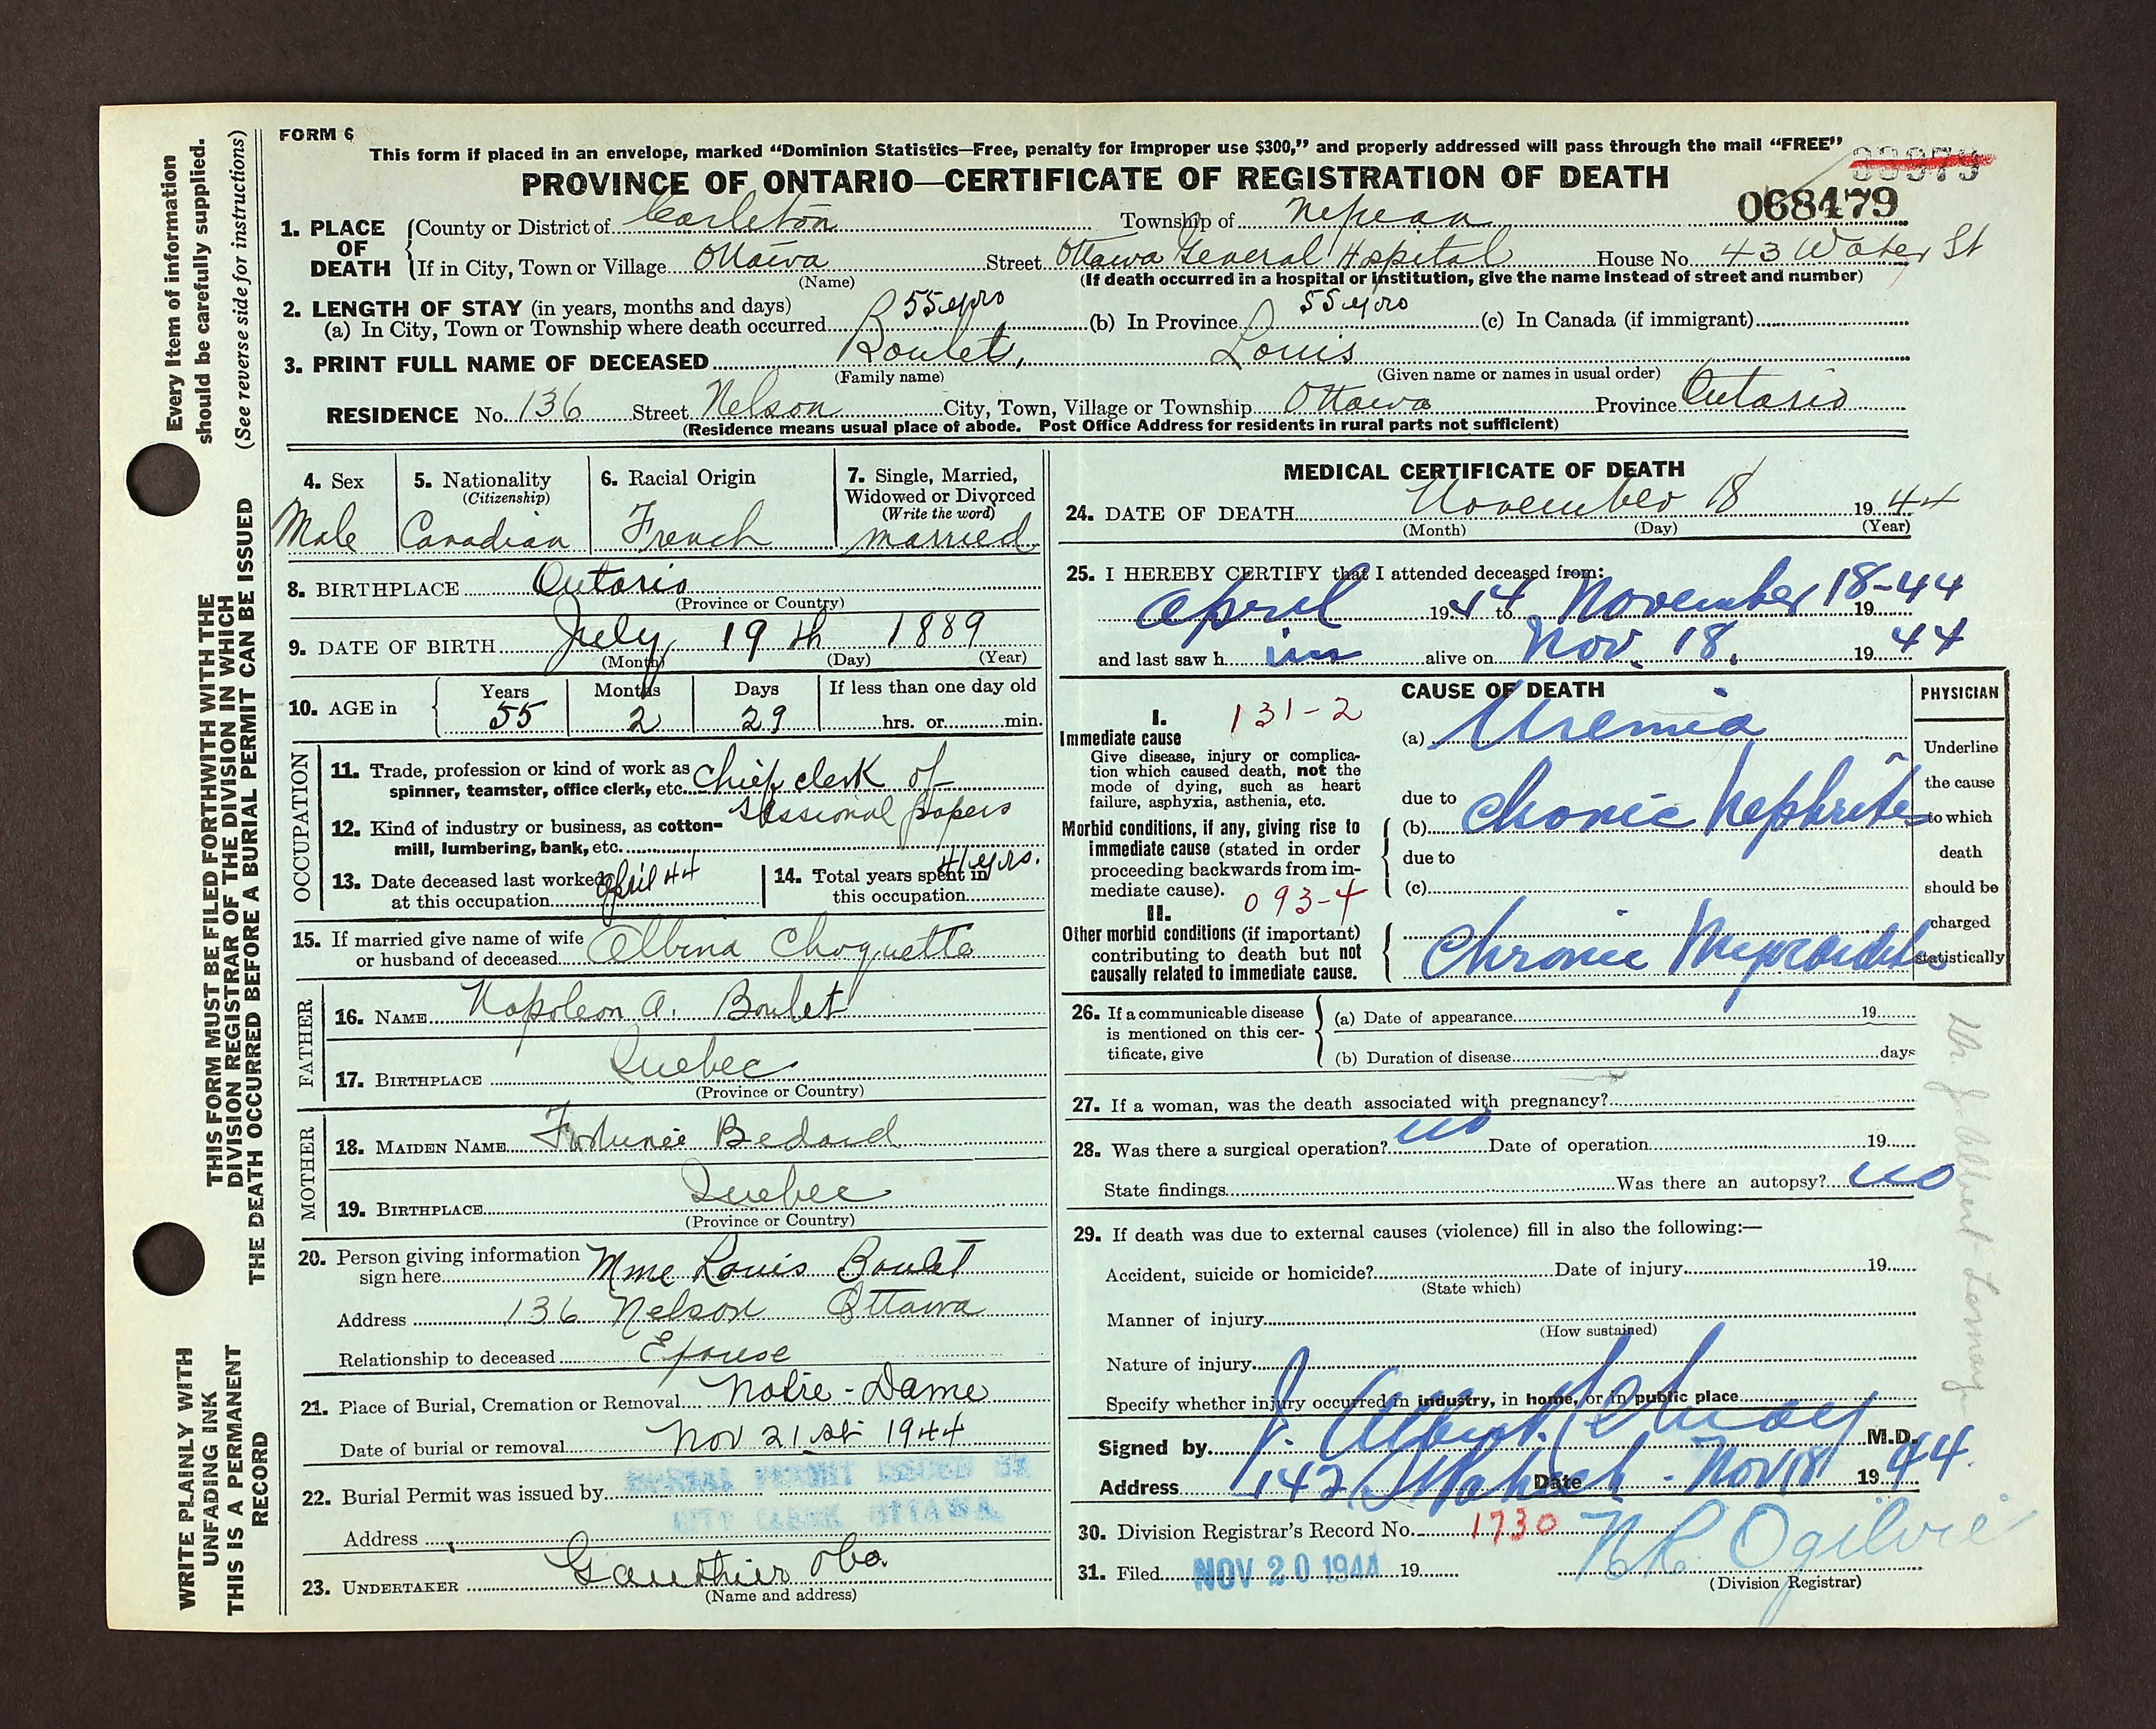 FORM 6
This form if placed in an envelope, marked “Dominion Statistics—Free, penalty for improper use $300,” and properly addressed will pass through the mail “FREE”
PROVINCE OF ONTARIO—CERTIFICATE OF REGISTRATION OF DEATH
068479
1. PLACE OF DEATH
County or District of Carleton Township of Nepean
If in City, Town or Village Ottawa Street Ottawa General Hospital House No. 43 Water St
(Name) (If death occurred in a hospital or institution, give the name instead of street and number)
2. LENGTH OF STAY (in years, months and days)
(a) In City, Town or Township where death occurred 55 yrs (b) In Province 55 yrs (c) In Canada (if immigrant)
3. PRINT FULL NAME OF DECEASED Boulet, Louis
(Family name) (Given name or names in usual order)
RESIDENCE No. 136 Street Nelson City, Town, Village or Township Ottawa Province Ontario
(Residence means usual place of abode. Post Office Address for residents in rural parts not sufficient)
4. Sex
Male
5. Nationality
(Citizenship)
Canadian
6. Racial Origin
French
7. Single, Married,
Widowed or Divorced
(Write the word)
married
8. BIRTHPLACE Ontario
(Province or Country)
9. DATE OF BIRTH July 19th 1889
(Month) (Day) (Year)
10. AGE in
Years Months Days If less than one day old
55 2 29 hrs. or min.
OCCUPATION
11. Trade, profession or kind of work as chief clerk of
spinner, teamster, office clerk, etc.
sessional papers
12. Kind of industry or business, as cotton-
mill, lumbering, bank, etc.
13. Date deceased last worked April 44
at this occupation
14. Total years spent in 41 yrs.
this occupation
15. If married give name of wife
or husband of deceased Albina Choquette
FATHER
16. NAME Napoleon A. Boulet
17. BIRTHPLACE Quebec
(Province or Country)
MOTHER
18. MAIDEN NAME Fortunée Bedard
19. BIRTHPLACE Quebec
(Province or Country)
20. Person giving information
sign here Mme Louis Boulet
Address 136 Nelson Ottawa
Relationship to deceased Epouse
21. Place of Burial, Cremation or Removal Notre-Dame
Date of burial or removal Nov 21st 1944
22. Burial Permit was issued by BURIAL PERMIT ISSUED BY
CITY CLERK OTTAWA.
Address
23. UNDERTAKER Gauthier
(Name and address)
MEDICAL CERTIFICATE OF DEATH
24. DATE OF DEATH November 18 1944
(Month) (Day) (Year)
25. I HEREBY CERTIFY that I attended deceased from:
April 1944 to November 18-44 19
and last saw h im alive on Nov. 18. 19 44
CAUSE OF DEATH
I. 131-2
Immediate cause
Give disease, injury or complica-
tion which caused death, not the
mode of dying, such as heart
failure, asphyxia, asthenia, etc.
(a) Uremia
due to
Morbid conditions, if any, giving rise to
immediate cause (stated in order
proceeding backwards from im-
mediate cause).
(b) Chronic Nephrites
due to
(c)
093-4
II.
Other morbid conditions (if important)
contributing to death but not
causally related to immediate cause.
Chronic
PHYSICIAN
Underline
the cause
to which
death
should be
charged
statistically
26. If a communicable disease
is mentioned on this cer-
tificate, give
(a) Date of appearance 19
(b) Duration of disease days
27. If a woman, was the death associated with pregnancy?
28. Was there a surgical operation? no Date of operation 19
State findings Was there an autopsy? no
29. If death was due to external causes (violence) fill in also the following:—
Accident, suicide or homicide? Date of injury 19
(State which)
Manner of injury
(How sustained)
Nature of injury
Specify whether injury occurred in industry, in home, or in public place
Signed by J. Albert M.D.
Address 142 Date Nov 18 19 44.
30. Division Registrar's Record No. 1730
31. Filed NOV 20 1944 19
Ogilvie
(Division Registrar)
Every item of information
should be carefully supplied.
(See reverse side for instructions)
THIS FORM MUST BE FILED FORTHWITH WITH THE
DIVISION REGISTRAR OF THE DIVISION IN WHICH
THE DEATH OCCURRED BEFORE A BURIAL PERMIT CAN BE ISSUED
WRITE PLAINLY WITH
UNFADING INK
THIS IS A PERMANENT
RECORD